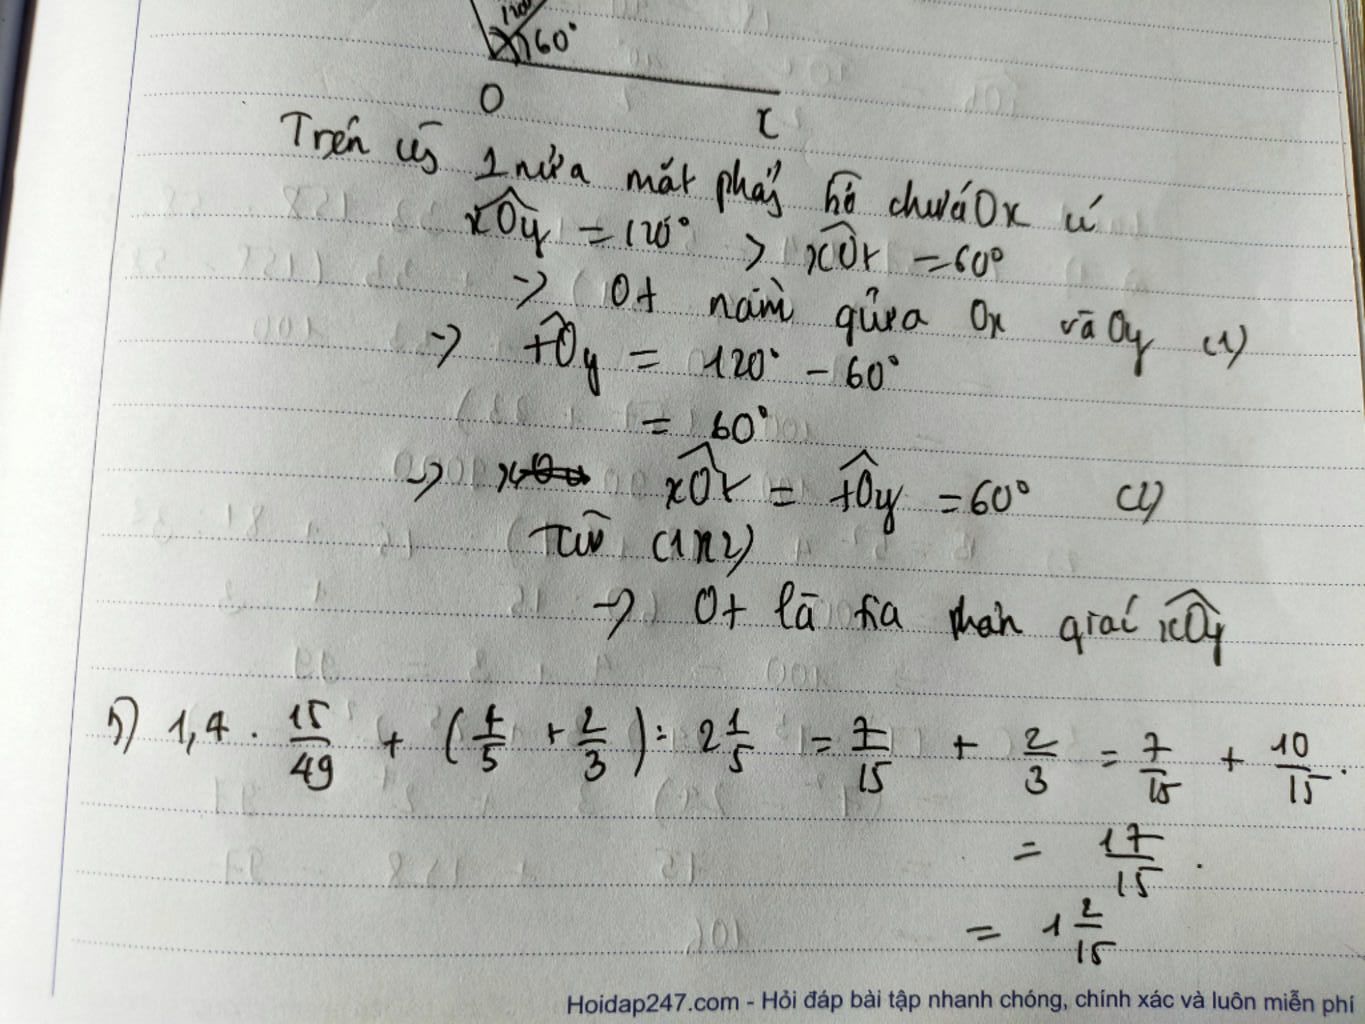 120°
60°
O
x
Trên cùng 1 nửa mặt phẳng bờ chứa Ox có
xOy = 120° > xOt = 60°
=> Ot nằm giữa Ox và Oy (1)
=> tOy = 120° - 60°
= 60°
=> xOt = tOy = 60° (2)
Từ (1)(2)
=> Ot là tia phân giác xOy
b) 1,4 . 15/49 + (4/5 + 2/3) : 2 1/5 = 7/15 + 2/3 = 7/15 + 10/15 .
= 17/15 .
= 1 2/15
Hoidap247.com - Hỏi đáp bài tập nhanh chóng, chính xác và luôn miễn phí